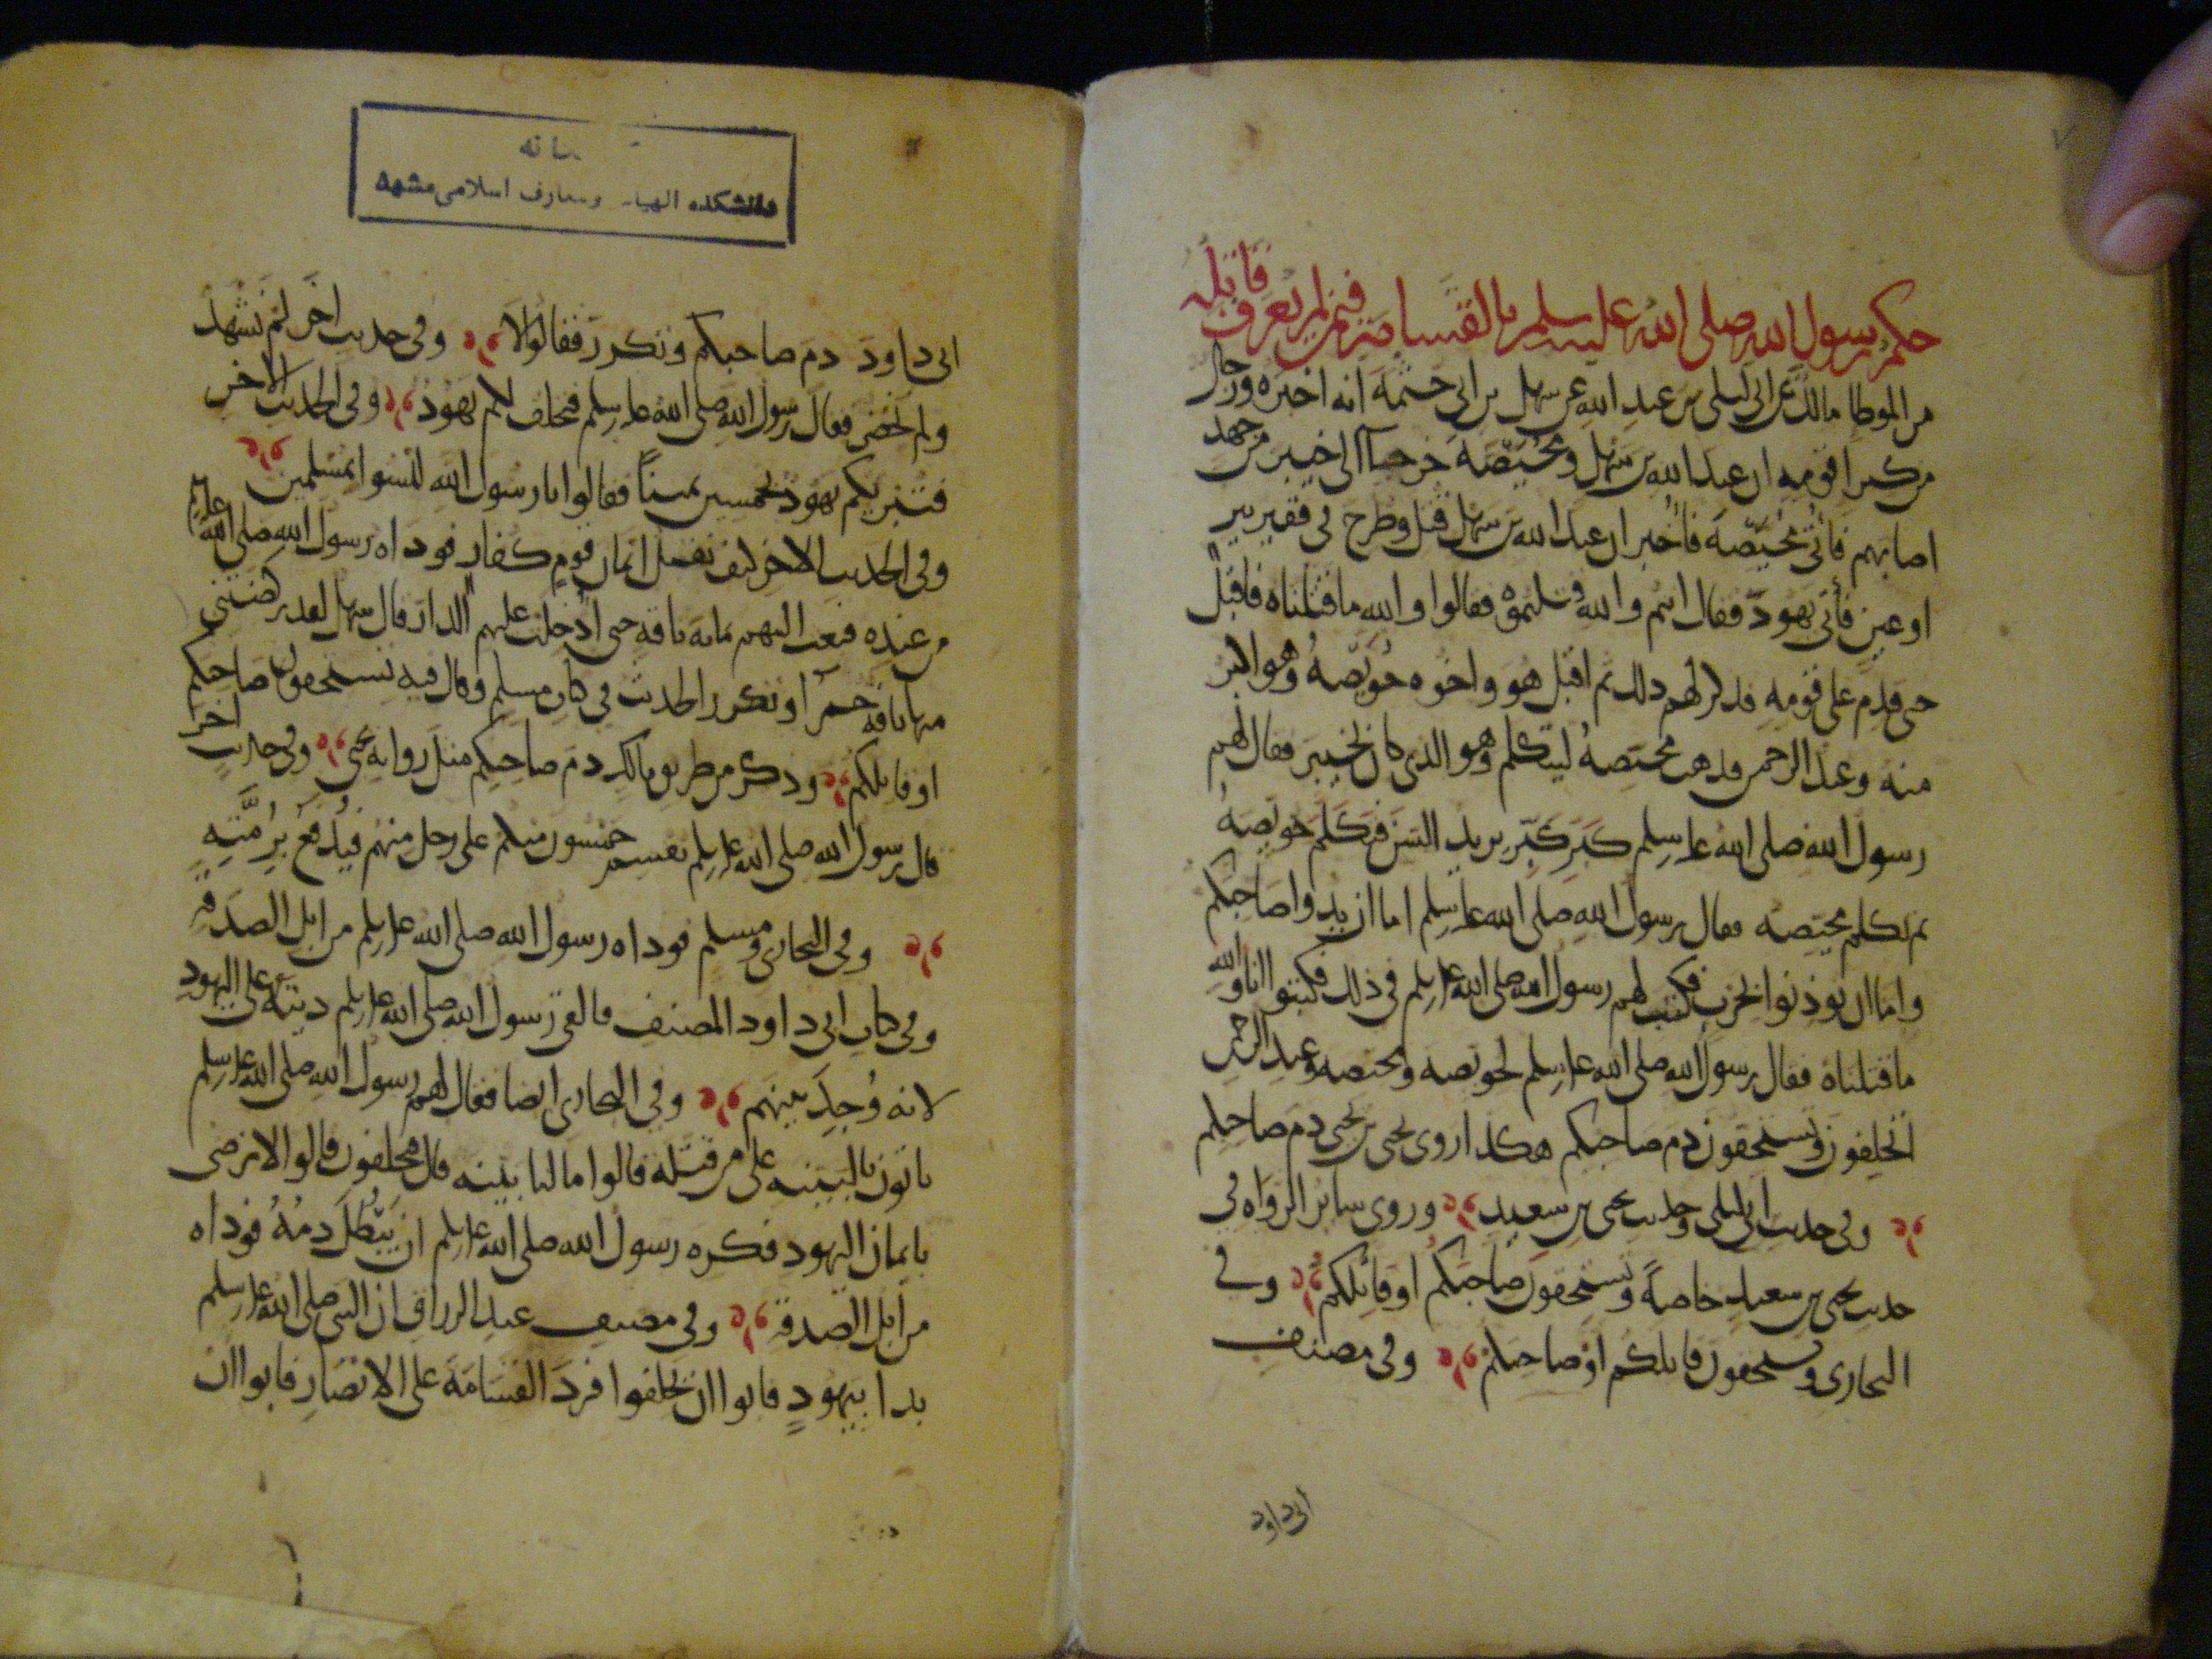 حكم رسول الله صلى الله عليه وسلم بالقسامة فيمن لم يعرف قاتله
من الموطا مالك عن ابى ليلى بن عبد الله عن سهل بن ابى حثمة انه اخبره ورجال
من كبرا قومه ان عبد الله بن سهل ومُحيّصة خرجا الى خيبر من جهد
اصابهم فأتى مُحيّصة فأُخبر ان عبد الله بن سهل قتل وطرح فى فقير بير
او عين فأتى يهود فقال انتم والله قتلتموه فقالوا والله ما قتلناه فاقبل
حتى قدم على قومه فذكر لهم ذلك ثم اقبل هو واخوه حويّصة وهو اكبر
منه وعبد الرحمن فذهب محيصة ليتكلم وهو الذى كان بخيبر فقال لهم
رسول الله صلى الله عليه وسلم كَبّر كَبّر يريد السن فتكلم حويصة
ثم تكلم محيصه فقال رسول الله صلى الله عليه وسلم اما ان يدوا صاحبكم
واما ان يوذنوا بحرب فكتب لهم رسول الله صلى الله عليه وسلم فى ذلك فكتبوا انا والله
ما قتلناه فقال رسول الله صلى الله عليه وسلم لحويصه ومحيصه وعبد الرحمن
اتحلفون وتستحقون دم صاحبكم هكذا روى يحيى بن يحيى دم صاحبكم
وفى حديث ابى ليلى وحديث يحيى بن سعيد وروى ساير الرواه فى
حديث يحيى بن سعيد خاصةً وتستحقون صاحبكم او قاتلكم وفى
البخارى وتستحقون قاتلكم او صاحبكم وفى مصنف
ابى داود
دانشكده الهيات ومعارف اسلامى مشهد
ابى داود دم صاحبكم وتكرر فقالوا لا وفى حديث اخر لم نشهد
ولم نحضر فقال رسول الله صلى الله عليه وسلم فتحلف لكم يهود وفى الحديث الاخر
فتبريكم يهود بخمسين يميناً فقالوا يا رسول الله ليسوا بمسلمين
وفى الحديث الاخر كيف نقبل ايمان قوم كفار فوداه رسول الله صلى الله عليه وسلم
من عنده فبعث اليهم بمايه ناقه حتى ادخلت عليهم الدار قال سهل لقد ركضتنى
منها ناقة حمرا وتكرر الحديث فى كتاب مسلم وقال فيه تستحقون صاحبكم
او قاتلكم وذكر من طريق مالك دم صاحبكم مثل رواية يحيى وفى حديث اخر
قال رسول الله صلى الله عليه وسلم يقسم خمسون منكم على رجل منهم فيُدفعُ برُمَّته
وفى البخارى ومسلم فوداه رسول الله صلى الله عليه وسلم من ابل الصدقة
وفى كتاب ابى داود المصنف فالقى رسول الله صلى الله عليه وسلم ديته على اليهود
لانه وُجِدَ بينهم وفى البخارى ايضا فقال لهم رسول الله صلى الله عليه وسلم
تاتون بالبينه على من قتله قالوا ما لنا بينه قال فيحلفون قالوا لا نرضى
بايمان اليهود فكره رسول الله صلى الله عليه وسلم ان يُبطلَ دمُهُ فوداه
من ابل الصدقه وفى مصنف عبد الرزاق ان النبى صلى الله عليه وسلم
بدا بيهودٍ فابوا ان يحلفوا فرد القسامة على الانصار فابوا ان